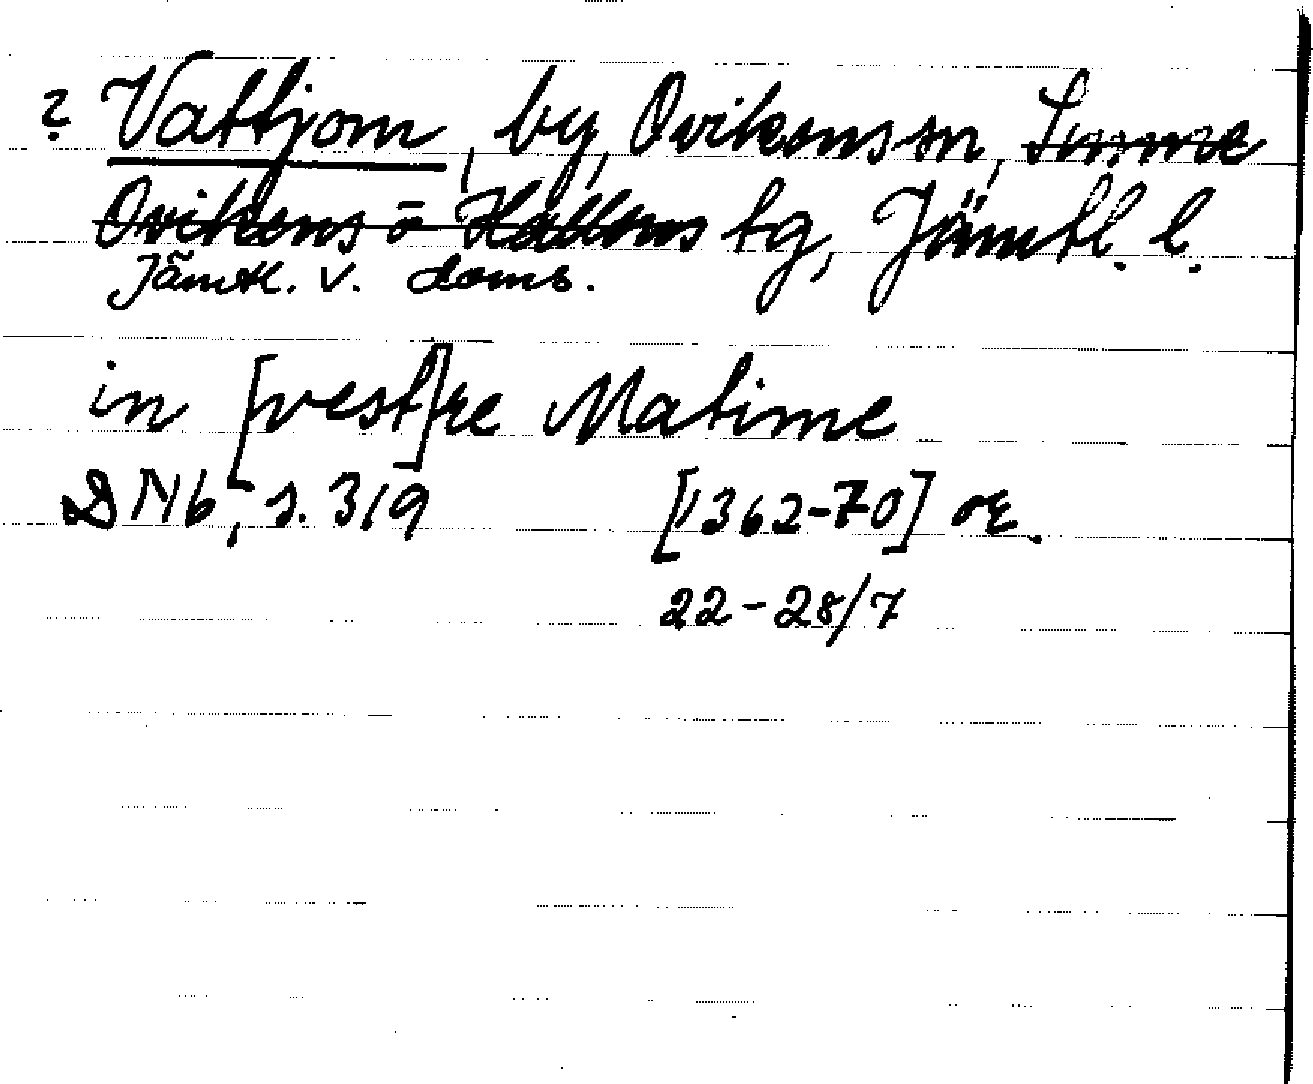 ? Vattjom, by, Ovikens sn, Sunne
Ovikens o Hallens tg, Jämtl. l.
Jämtl. v. doms.
in [vest]re Matime
DN 16, s. 319 [1362-70] or.
22-28/7